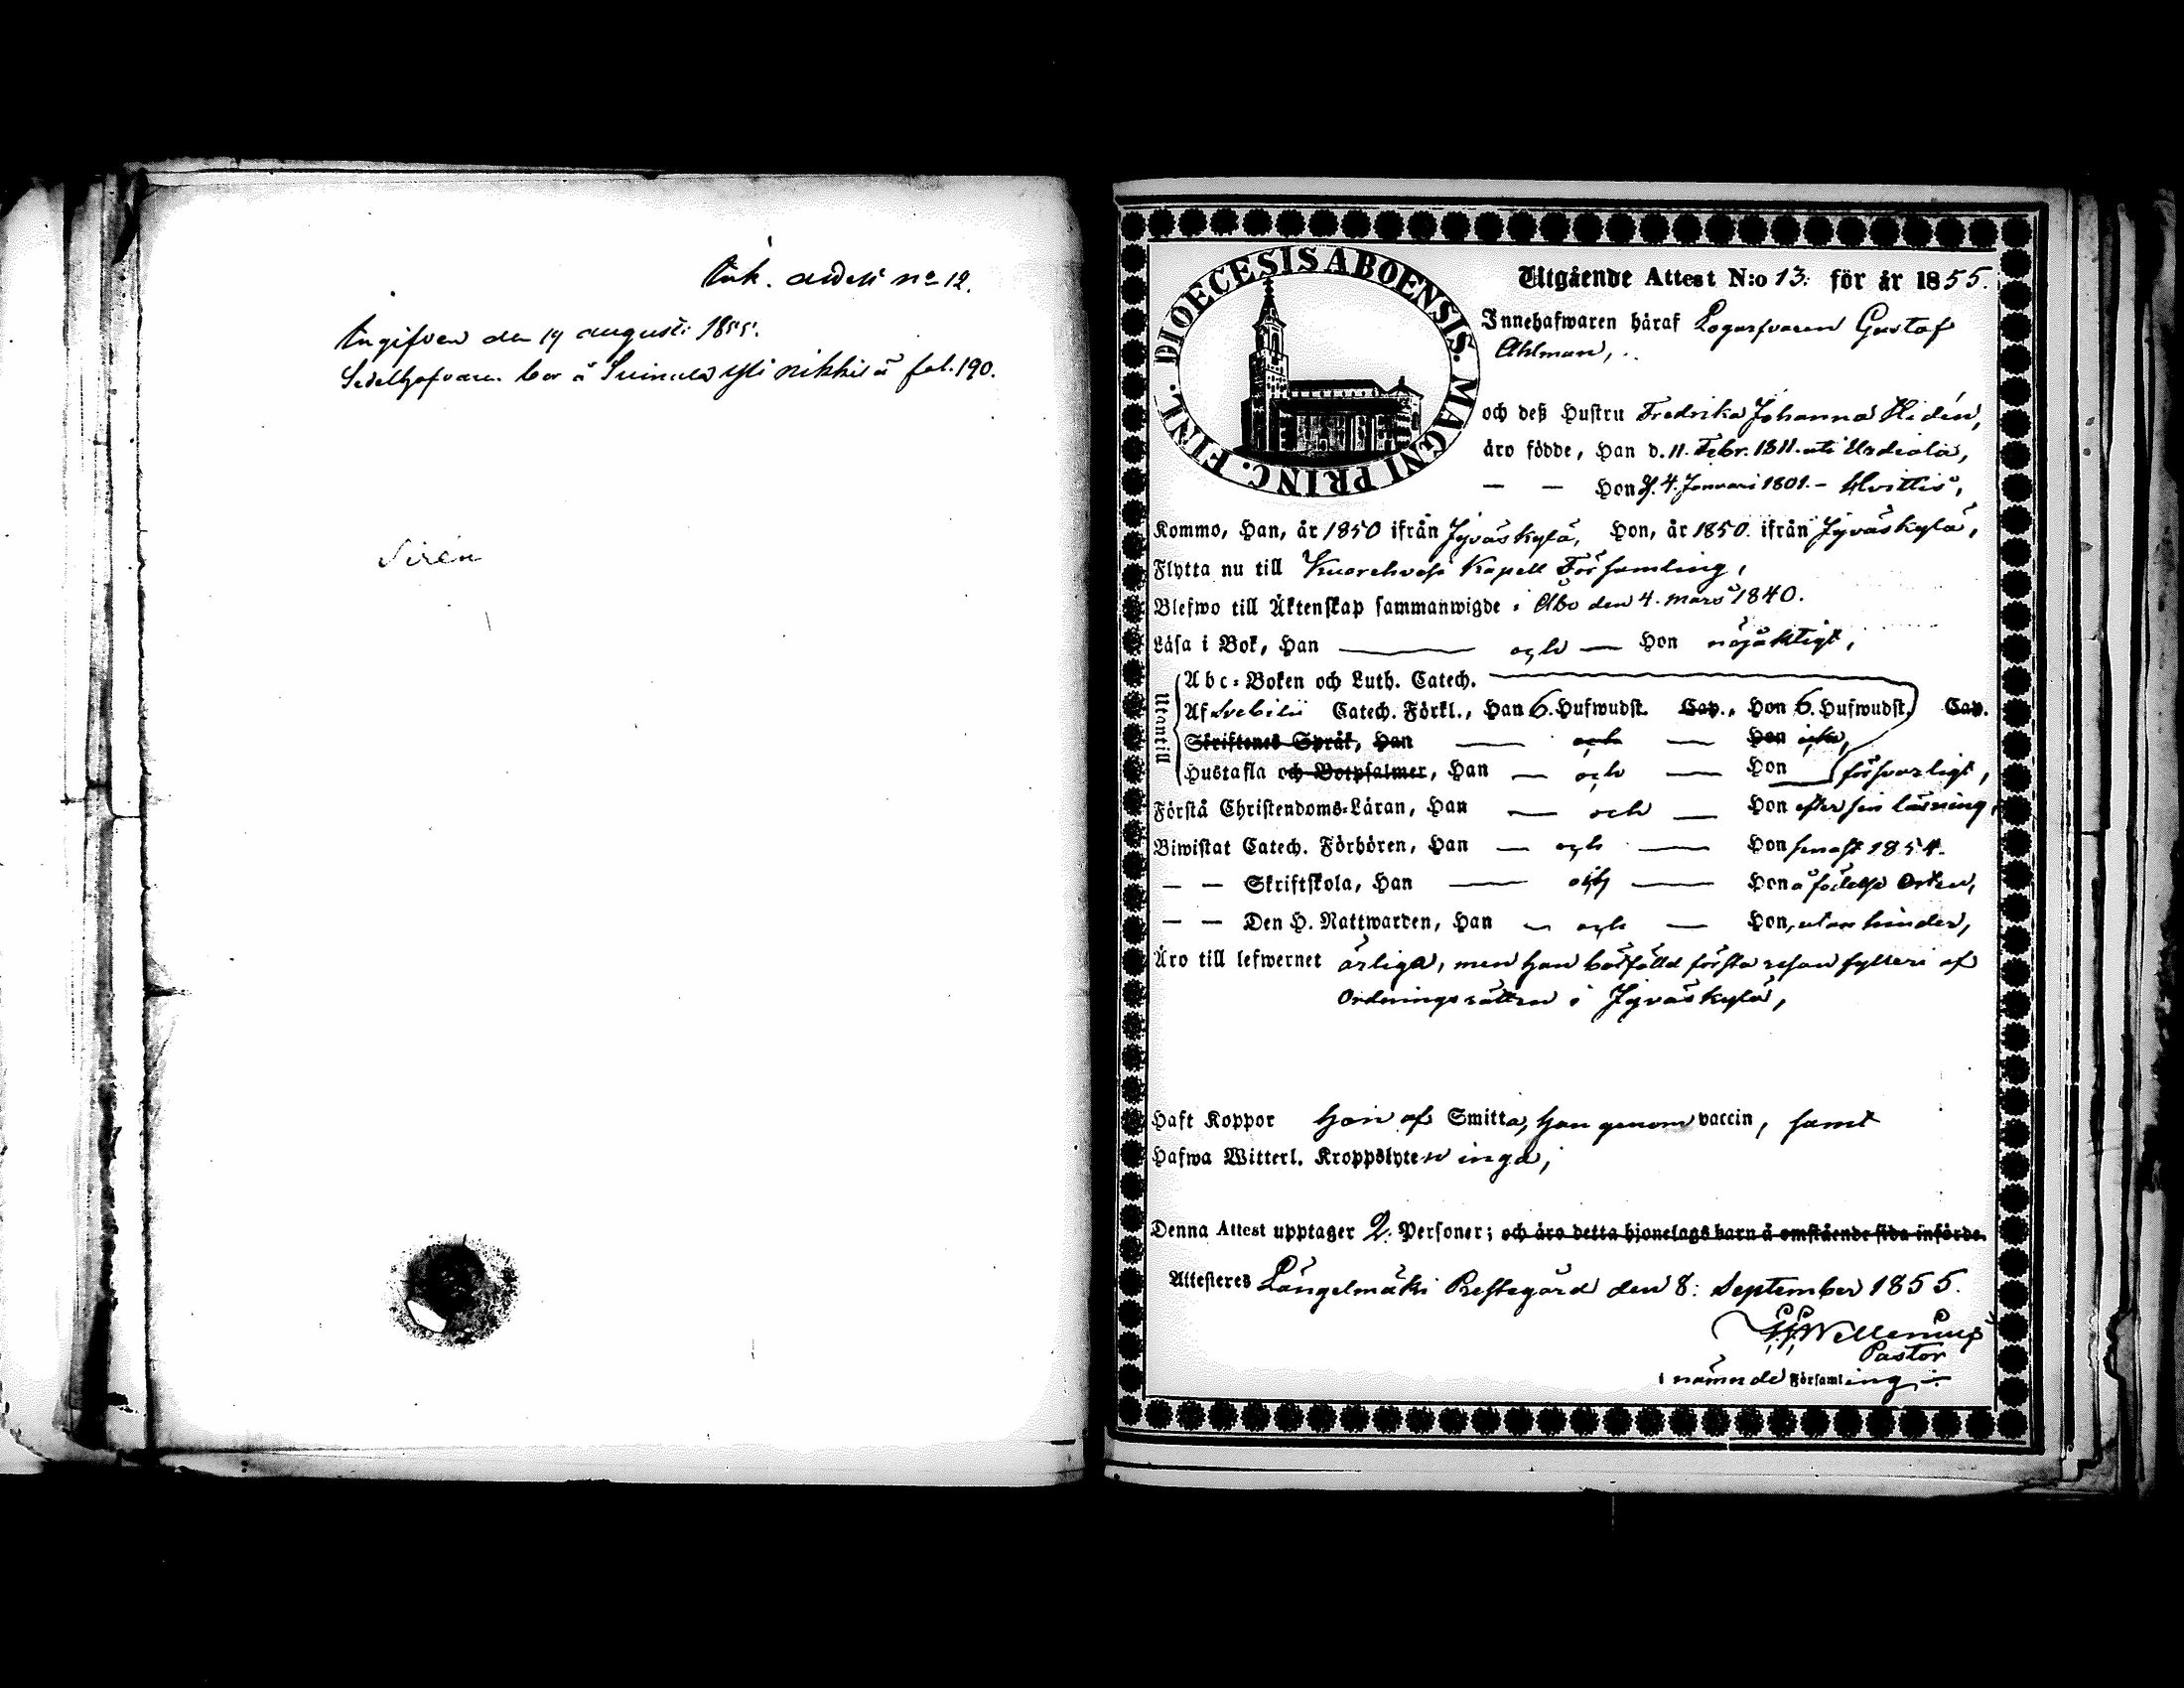 Ank. attest no 12.
Angifven den 19 augusti 1855.
Sedelhafvaren bor å Suinula yli nikkilä fol. 190.
Sirén
DIOECESIS ABOENSIS. MAGNI PRINC. FINL.
Utgående Attest N:o 13: för år 1855.
Innehafwaren håraf Logarfvaren Gustaf
Ahlman,
och deß Hustru Fredrika Johanna Hidén,
äro födde, Han d. 11. Febr. 1811. uti Urdiala,
— — Hon d. 4. Januari 1801. – Hvittis,
Kommo, Han, år 1850 ifrån Jyväskylä, Hon, år 1850. ifrån Jyväskylä,
Flytta nu till Kuorehvesi Kapell Församling,
Blefwo till Äktenskap sammanwigde i Åbo den 4. mars 1840.
Läsa i Bok, Han — och — Hon nöjaktigt,
Utantill
Abc-Boken och Luth. Catech.
Af Svebilii Catech. Förkl., Han 6. Hufwudst. Cap., Hon 6. Hufwudst. Cap.
Skriftenes Språk, Han — och — Hon
Hustafla och Botpsalmer, Han — och — Hon försvarligt,
Förstå Christendoms-Läran, Han — och — Hon efter sin läsning,
Biwistat Catech. Förhören, Han — och — Hon senast 1854.
— — Skriftskola, Han — och — Hon å födelse Orten,
— — Den H. Nattwarden, Han — och — Hon, utan hinder,
Äro till lefwernet ärliga, men han botfälld första resan fylleri af
Ordningsrätten i Jyväskylä,
Haft Koppor hon af Smitta, han genom vaccin, samt
Hafwa Witterl. Kroppslyten inga,
Denna Attest upptager 2. Personer; och äro detta hjonelags barn å omstående sida införde.
Attesteres Längelmäki Prestegård den 8: September 1855.
Wellenius
Pastor
i nämnde Församling